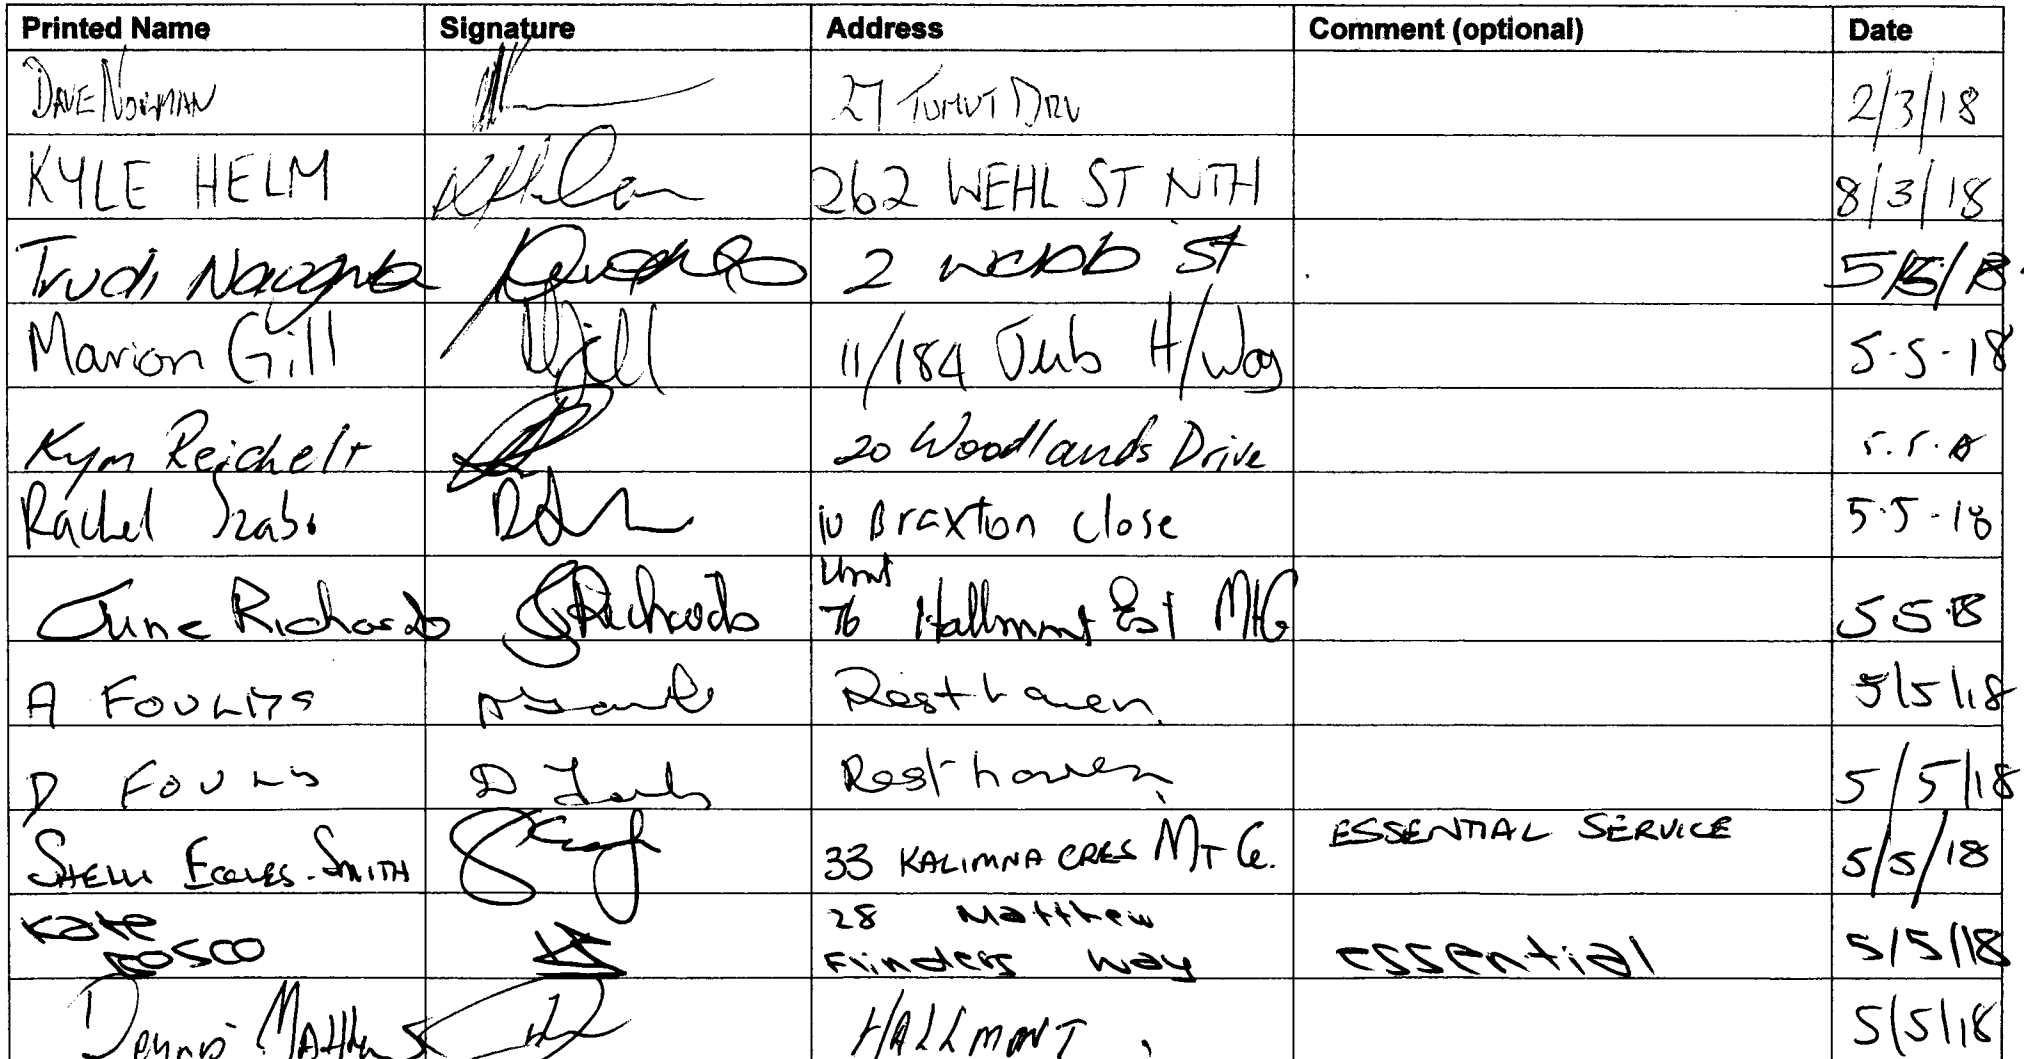 Printed Name Signature Address Comment (optional) Date
DAVE NORMAN 27 TUMUT DRV 2/3/18
KYLE HELM 262 WEHL ST NTH 8/3/18
Trudi 2 webb St 5/5/18
Marion Gill 11/184 Jub H/Way 5-5-18
Kym Reichelt 20 Woodlands Drive 5.5.18
Rachel Szabo 10 Braxton Close 5-5-18
Unit
June Richards JRichards 76 Hallmont Est MtG 5 5 18
A FOULDS Resthaven 5/5/18
D FOULDS D Foulds Resthaven 5/5/18
ESSENTIAL SERVICE
SHELLI ECCLES-SMITH 33 KALIMNA CRES MT G. 5/5/18
Kate 28 Matthew
BOSCO Flinders Way essential 5/5/18
Dennis HALLMONT 5/5/18